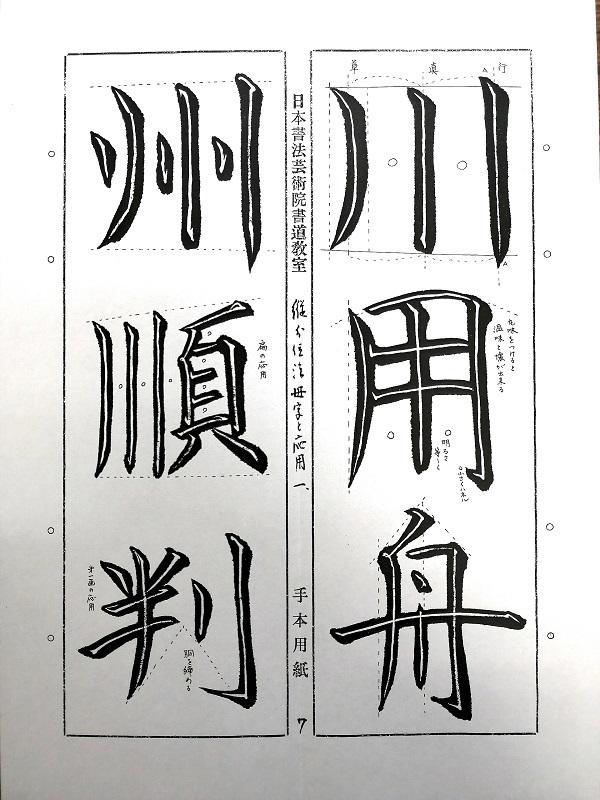 行
真
草
川
用
丸味をつけると
温味と懐が出来る
明るさ
等しく
小さくハネル
舟
日本書法芸術院書道教室
縦分位法母字と応用一、
手本用紙
7
州
順
扁の応用
判
才一画の応用
胴を締める